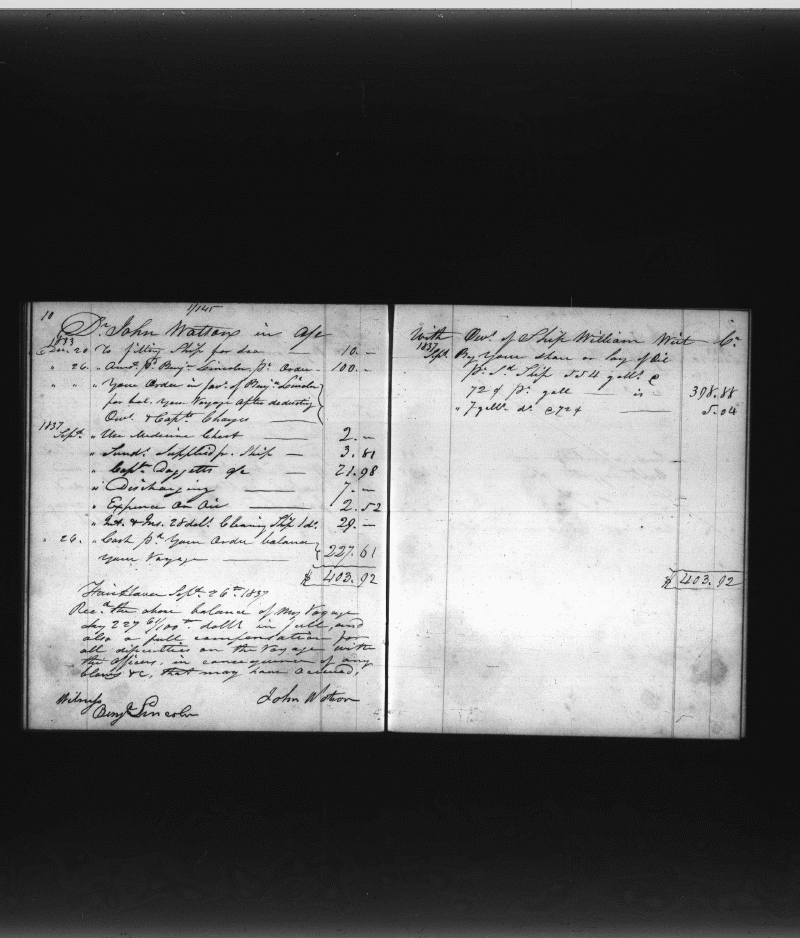 10
1/145
Dr. John Watson in a/c
1833
Dec. 20 To fitting Ship for Sea — 10. –
" 26. " Am't. pd. Benj. Lincoln, pr. Order – 100. –
" " " Your Order in fav. of Benj. Lincoln
for bal. Your Voyage after deducting
Own. & Capt. Charges —
1837
Sept. " Use Medicine Chest — 2. –
" Sund. Supplied pr. Ship — 3. 81
" Capt. Daggetts a/c — 21. 98
" Discharging — 7. –
" Expence on Oil — 2. 52
" Int. & Ins. 28 doll. Cleaning Ship 1 do. 29. –
" 26. " Cash pd. Your Order balance
Your Voyage — 227. 61
$ 403. 92
Fairhaven Sept. 26th 1837
Rec.d the above balance of my Voyage
227 61/100th dolls in full, and
also a full compensation for
all dificulties on the Voyage with
the Officers, in consequence of any
blows &c. that may have occured.
Witness
Benj. Lincoln
John Watson
With Own. of Ship William Wirt Cr.
1837
Sept. By Your share or lay of Oil
pr. Sd. Ship 554 galls. @
72 ¢ pr. gall — is – 398.88
" 7 galls. do. @ 72 ¢ — 5.04
$ 403. 92